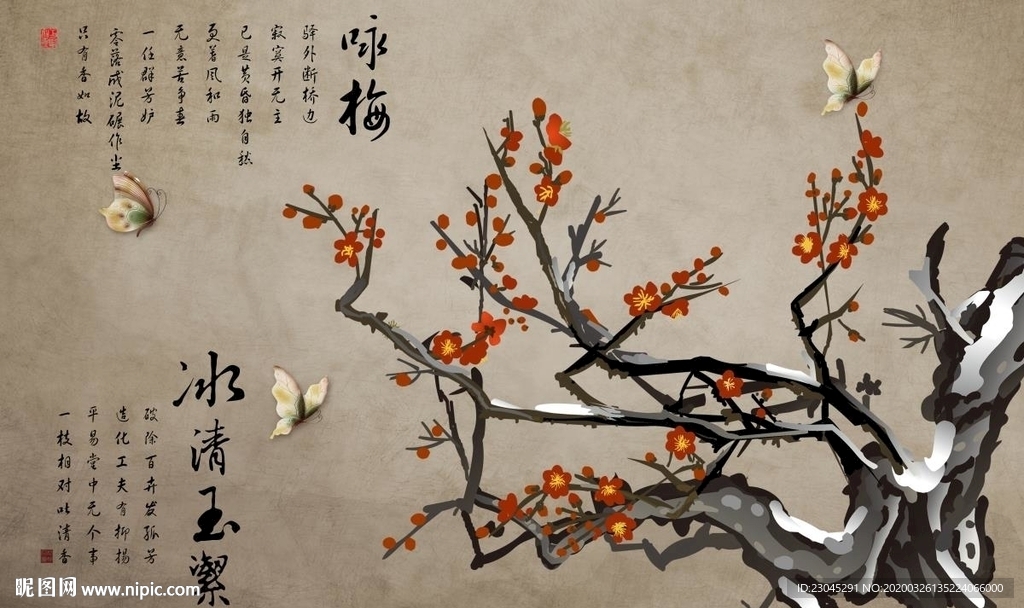 咏梅
驿外断桥边
寂寞开无主
已是黄昏独自愁
更著风和雨
无意苦争春
一任群芳妒
零落成泥碾作尘
只有香如故
冰清玉潔
破除百卉发孤芳
造化工夫有抑扬
平易堂中无个事
一枝相对吐清香
昵图网 www.nipic.com
ID:23045291 NO:20200326135224066000